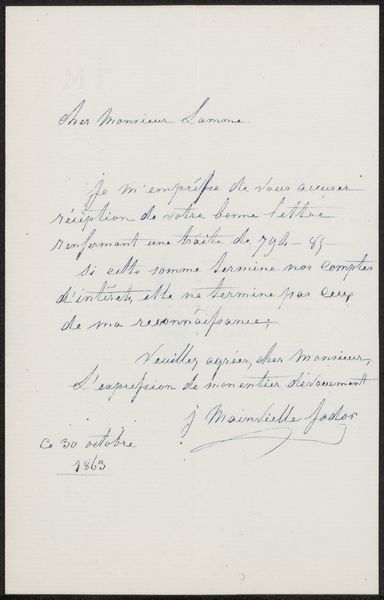 cher Monsieur Lamme
je m'empresse de vous accuser
réception de votre bonne lettre
renfermant une traite de 794-85
si cette somme termine nos comptes
d'intérets, elle ne termine pas ceux
de ma reconnaissance;
Veuillez, agréer, cher Monsieur,
L'expression de mon entier dévouement
j Mainvielle fodor
Ce 30 octobre
1863